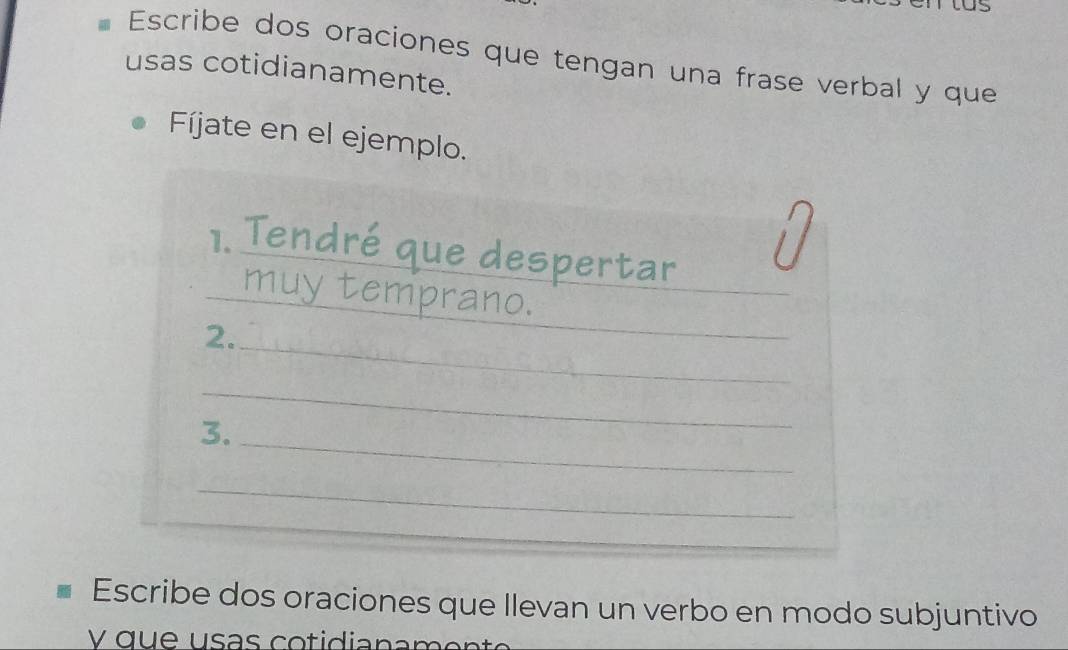 en tus
Escribe dos oraciones que tengan una frase verbal y que
usas cotidianamente.
Fíjate en el ejemplo.
1. Tendré que despertar
muy temprano.
2.
3.
Escribe dos oraciones que llevan un verbo en modo subjuntivo
y que usas cotidianamente